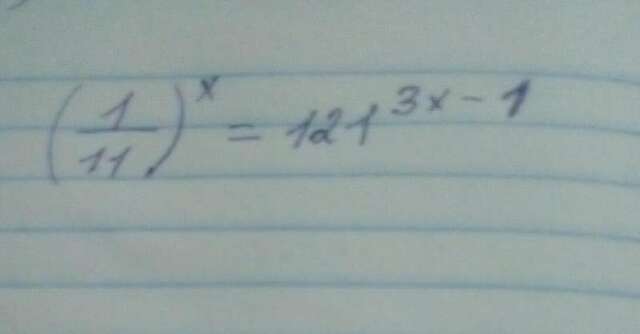 (1/11)^x = 121^{3x - 1}